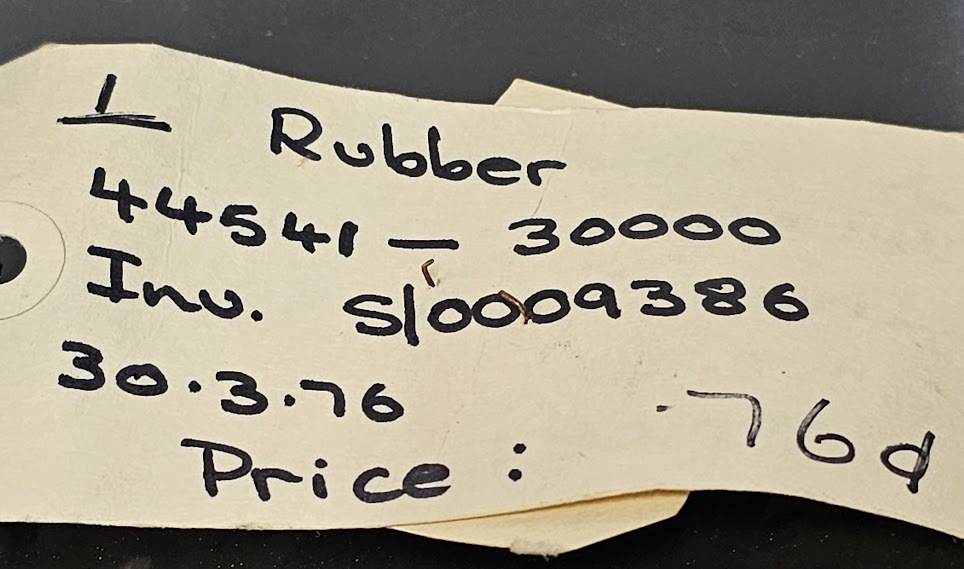 1 Rubber
44541 — 30000
Inv. S/0009386
30.3.76
Price : .76d